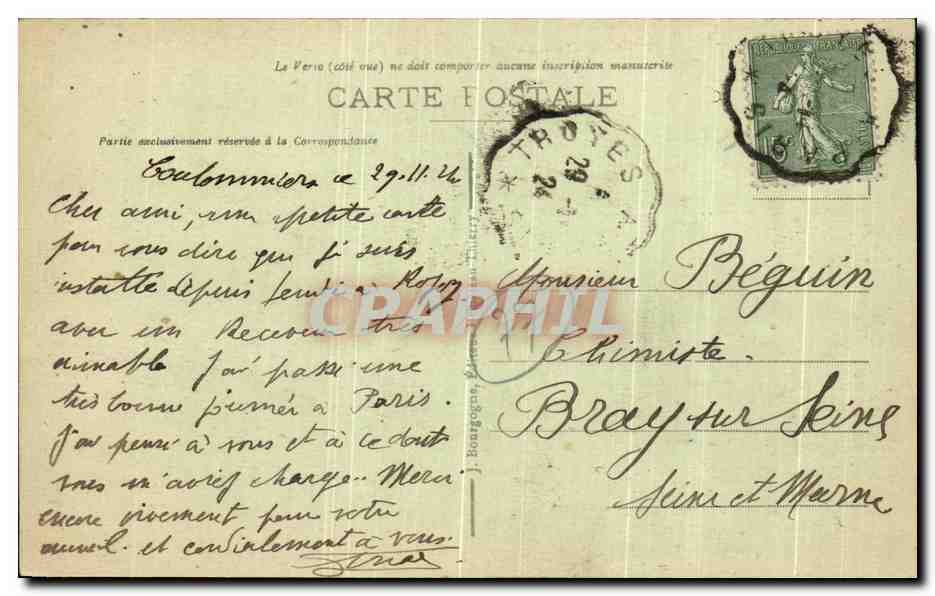 Le Verso (côté vue) ne doit comporter aucune inscription manuscrite
CARTE POSTALE
Partie exclusivement réservée à la Correspondance
RÉPUBLIQUE FRANÇAISE
15
TROYES A
29
24
Coulommiers le 29.11.24
Cher ami, une petite carte
pour vous dire que je suis
installé depuis lundi à
avec un Receveur très
aimable J'ai passé une
très bonne journée à Paris.
J'ai pensé à vous et à ce dont
vous m'avez chargé. Merci
encore vivement pour votre
accueil et cordialement à vous.
J. Bourgogne, Château-Thierry
CPAPHIL
Monsieur Béguin
Chimiste.
Bray sur Seine
Seine et Marne